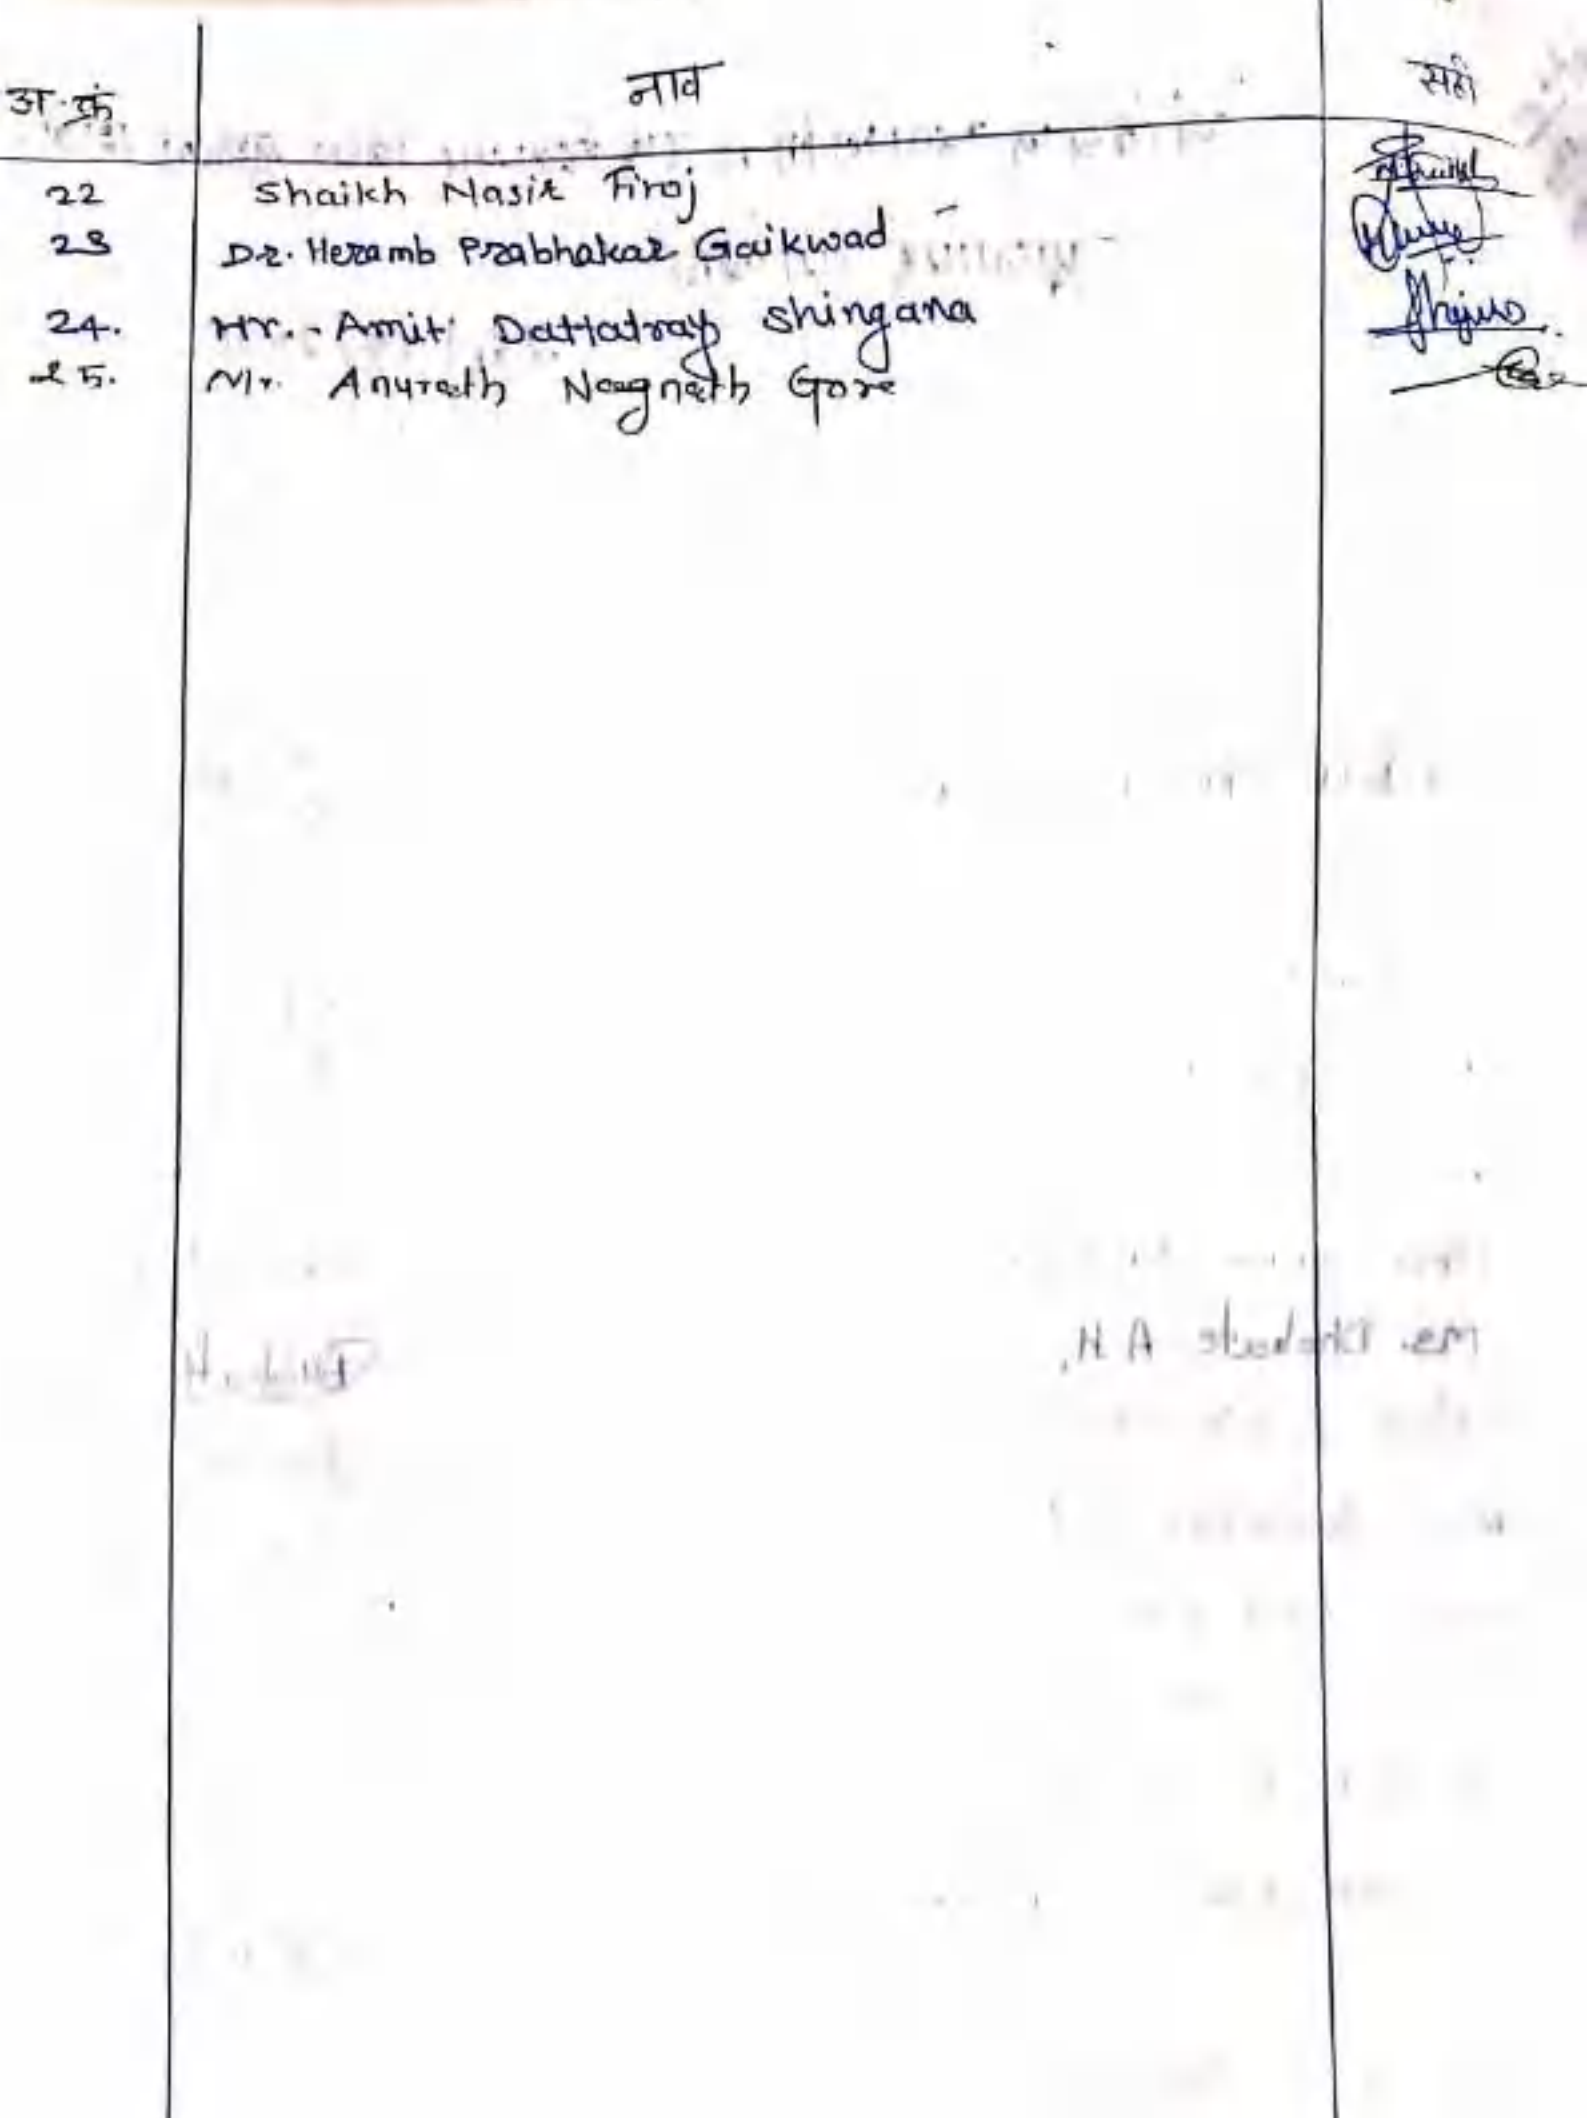 अ.क्रं. नाव सही
22 Shaikh Nasir Firoj
23 Dr. Heramb Prabhakar Gaikwad
24. Mr. Amit Dattatray Shingana
25. Mr. Anurath Nagnath Gore